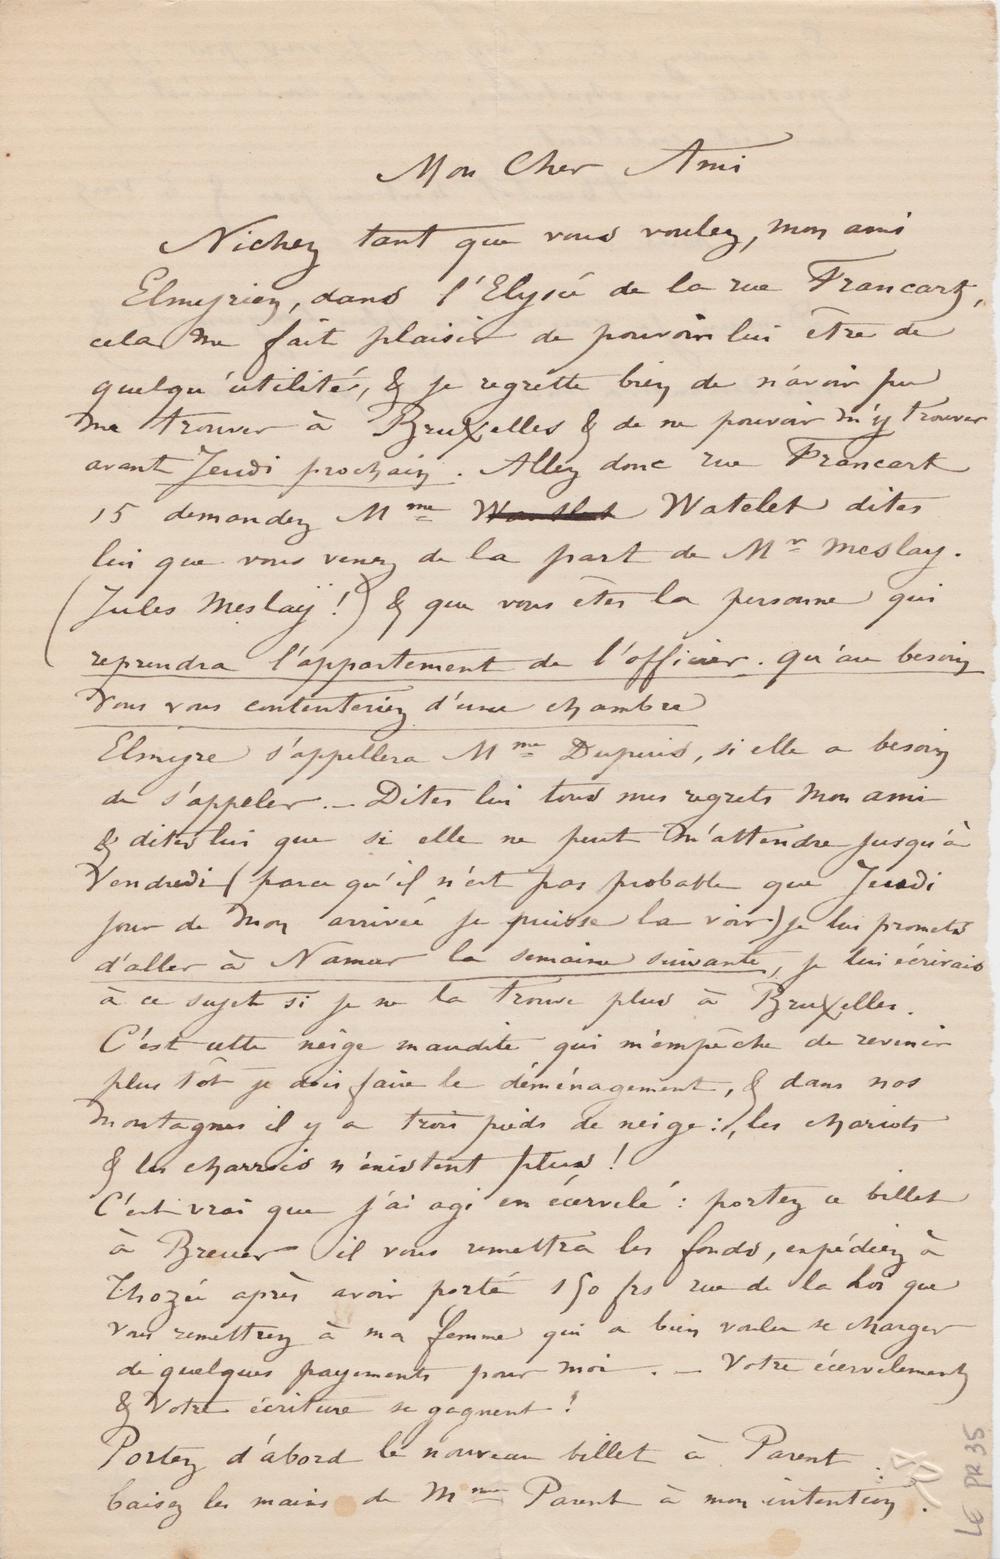 Mon Cher Ami
Nichez tant que vous voulez, mon ami
Elmyrien, dans l'Elysée de la rue Francart,
cela me fait plaisir de pouvoir lui être de
quelqu'utilité, & je regrette bien de n'avoir pu
me trouver à Bruxelles & de ne pouvoir m'y trouver
avant Jeudi prochain. Allez donc rue Francart
15 demandez Mme Watelet dites
lui que vous venez de la part de Mr Meslay.
(Jules Meslaÿ!) & que vous êtes la personne qui
reprendra l'appartement de l'officier. qu'au besoin
vous vous contenteriez d'une chambre
Elmyre s'appellera Mme Dupuis, si elle a besoin
de s'appeler. — Dites lui tous mes regrets mon ami
& dites lui que si elle ne peut m'attendre jusqu'à
Vendredi (parce qu'il n'est pas probable que Jeudi
jour de mon arrivée je puisse la voir) je lui promets
d'aller à Namur la semaine suivante, je lui écrirais
à ce sujet si je ne la trouve plus à Bruxelles.
C'est cette neige maudite qui m'empêche de revenir
plus tôt je dois faire le déménagement, & dans nos
montagnes il y a trois pieds de neige:, les chariots
& les charrois n'existent plus!
C'est vrai que j'ai agi en écervelé: portez ce billet
à Breuer il vous remettra les fonds, expédiez à
Thozée après avoir porté 150 frs rue de la Loi que
vous remettrez à ma femme qui a bien voulu se charger
de quelques payements pour moi. — Votre écervelement
& votre écriture se gagnent!
Portez d'abord le nouveau billet à Parent:
baisez les mains de Mme Parent à mon intention.
LE PR 35